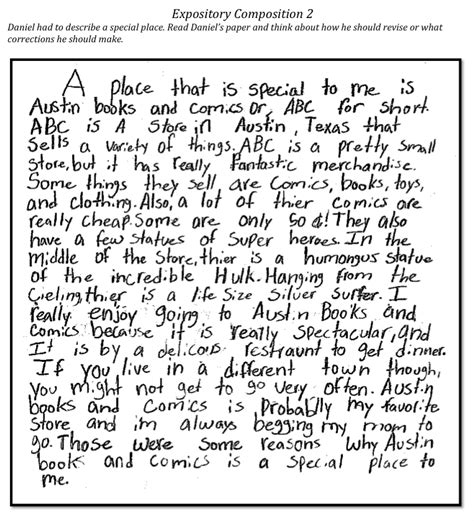 Expository Composition 2
Daniel had to describe a special place. Read Daniel's paper and think about how he should revise or what
corrections he should make.
A place that is special to me is
Austin books and comics or, ABC for short.
ABC is A Store in Austin, Texas that
Sells a variety of things. ABC is a pretty small
Store, but it has really fantastic merchandise.
Some things they sell are comics, books, toys,
and clothing. Also, a lot of thier comics are
really cheap. Some are only 50 ¢! They also
have a few statues of Super heroes. In the
middle of the Store, thier is a humongus statue
of the incredible Hulk. Hanging from the
Cieling, thier is a life Size Silver Surfer. I
really enjoy going to Austin Books and
Comics because it is really spectacular, and
It is by a delicois restraunt to get dinner.
If you live in a different town though,
You might not get to go very often. Austin
books and Comics is probablly my favorite
Store and im always begging my mom to
go. Those were some reasons why Austin
book and comics is a special place to
me.